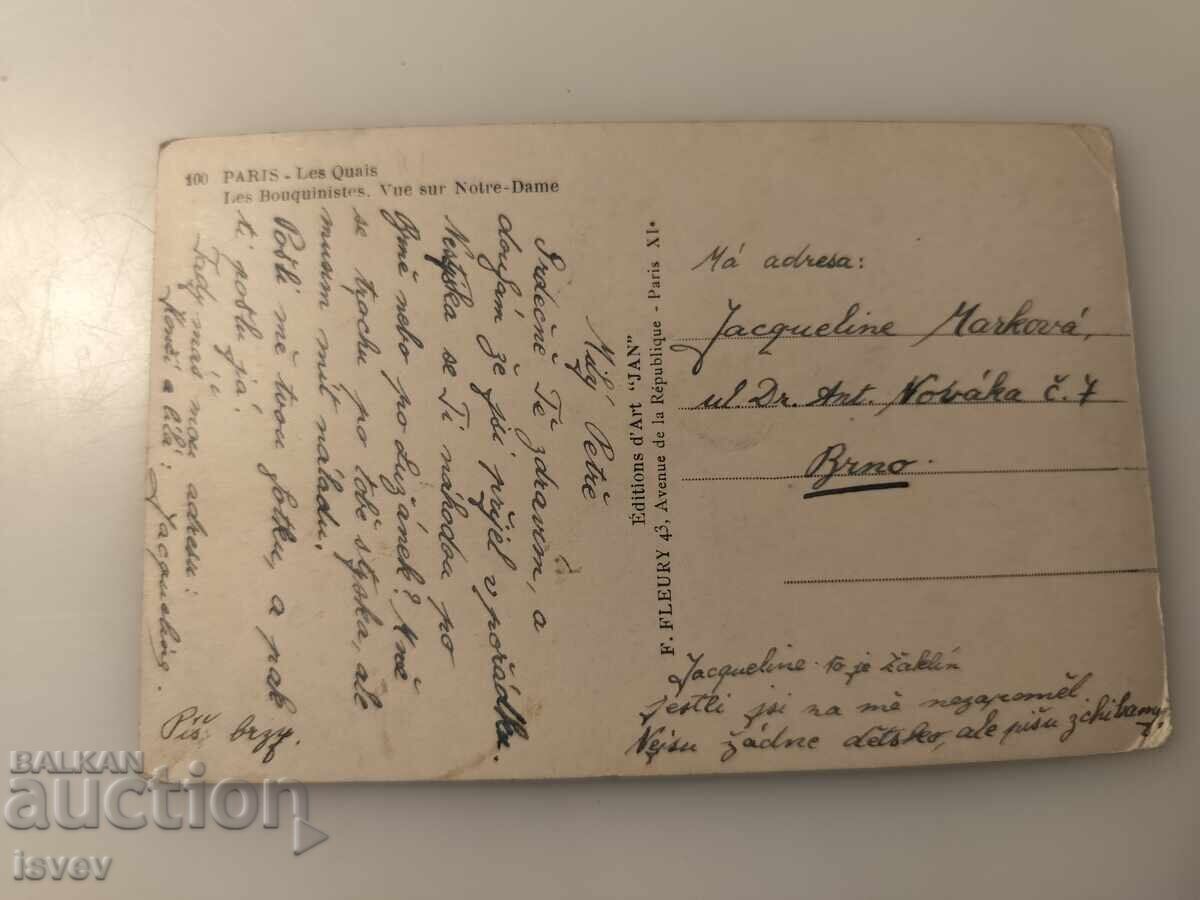 100 PARIS - Les Quais
Les Bouquinistes. Vue sur Notre-Dame
Milý Petře
Srdečně Tě zdravím, a
doufám že jsi přijel v pořádku.
Nestýska se Ti náhodou po
Brně nebo po Lužánek? Mně
se trochu po tobě stýska, ale
musím mít náladu.
Pošli mě tvou fotku, a pak
ti pošlu já!
Tady maš mou adresu:
Končí a líbá: Jacqueline.
Piš brzy.
Éditions d'Art "JAN"
F. FLEURY 43, Avenue de la République - Paris XI•
Má adresa:
Jacqueline Marková,
ul. Dr. Ant. Nováka č. 7
Brno.
Jacqueline - to je Žaklín
Jestli jsi na mě nezapoměl.
Nejsu žádne dětsko, ale pišu z chibamy.
BALKAN
auction
isvev